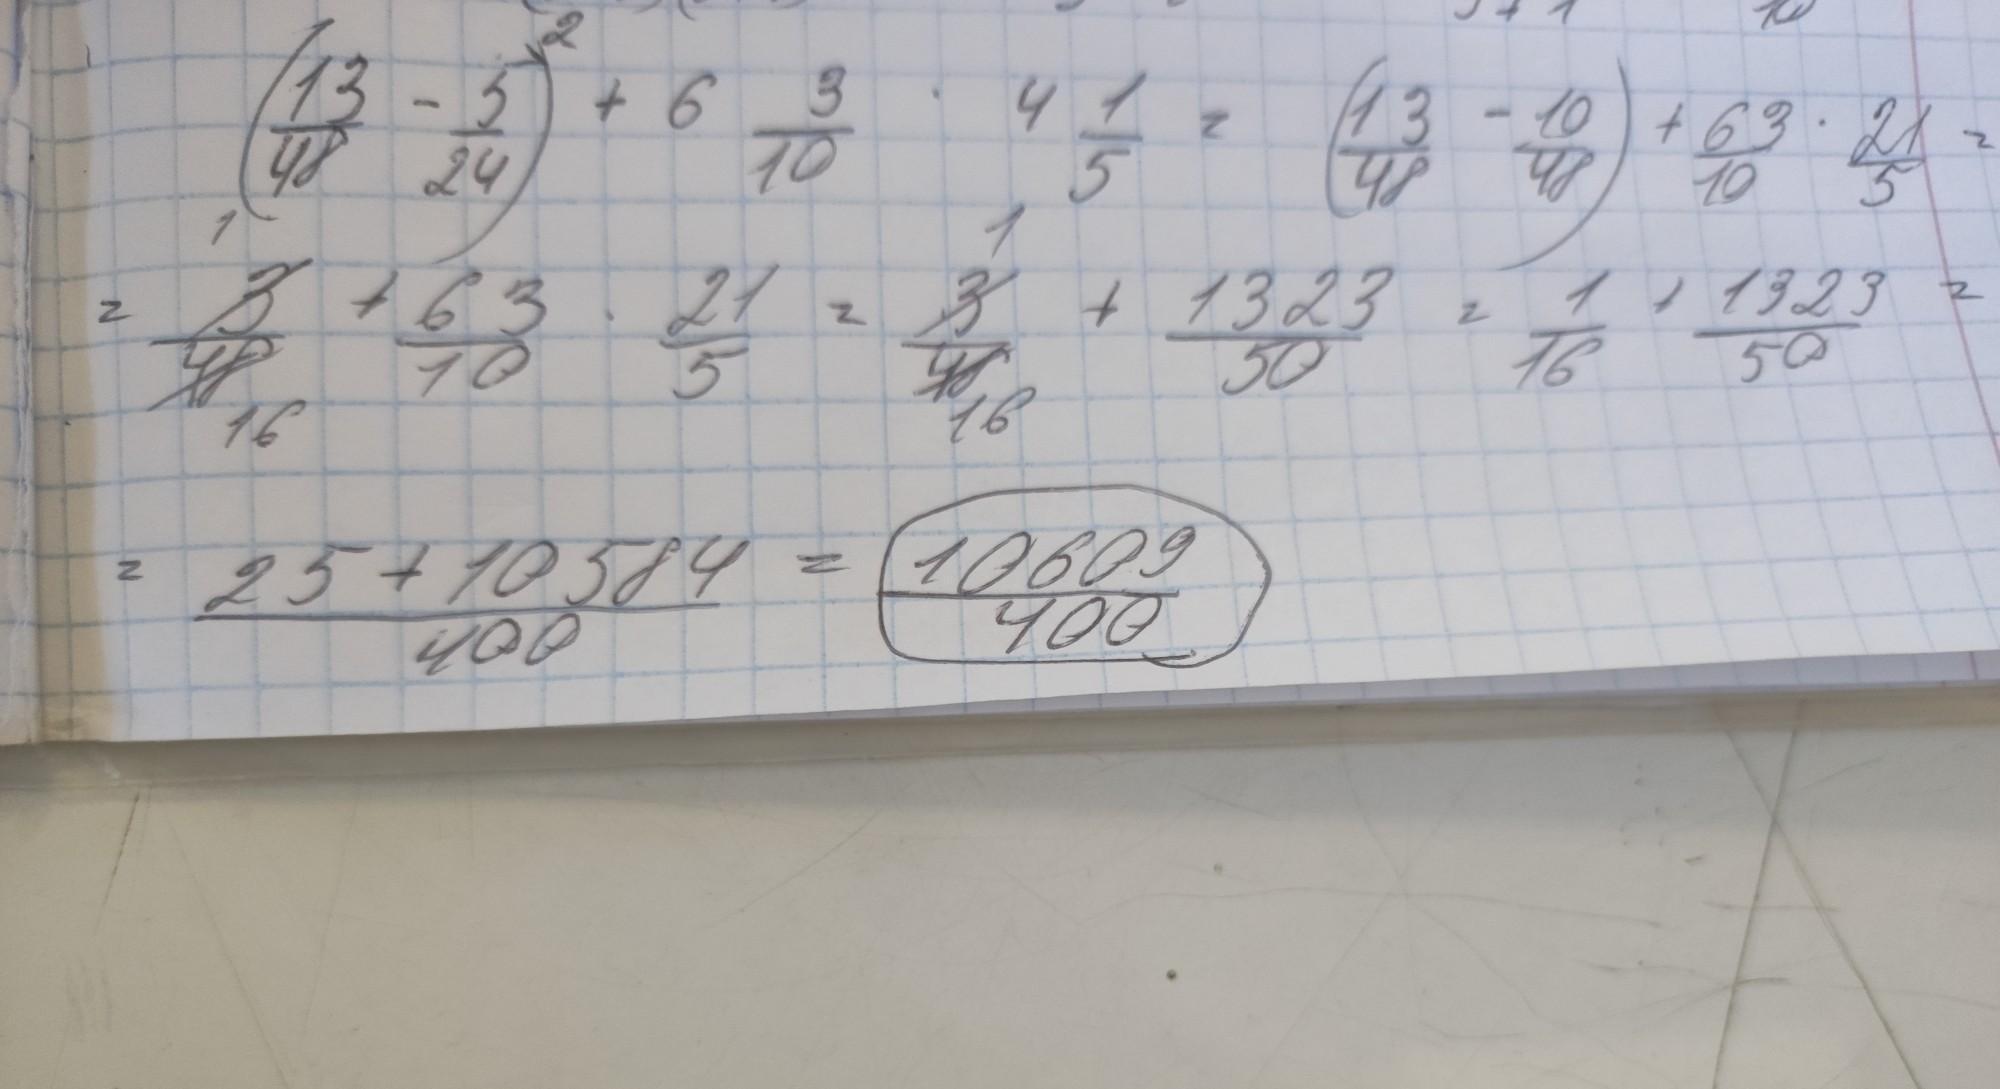 (13/48 - 5/24)² + 6 3/10 · 4 1/5 = (13/48 - 10/48) + 63/10 · 21/5 =
= 3/48 + 63/10 · 21/5 = 3/48 + 1323/50 = 1/16 + 1323/50 =
1 16 1 16
= 25+10584/400 = 10609/400